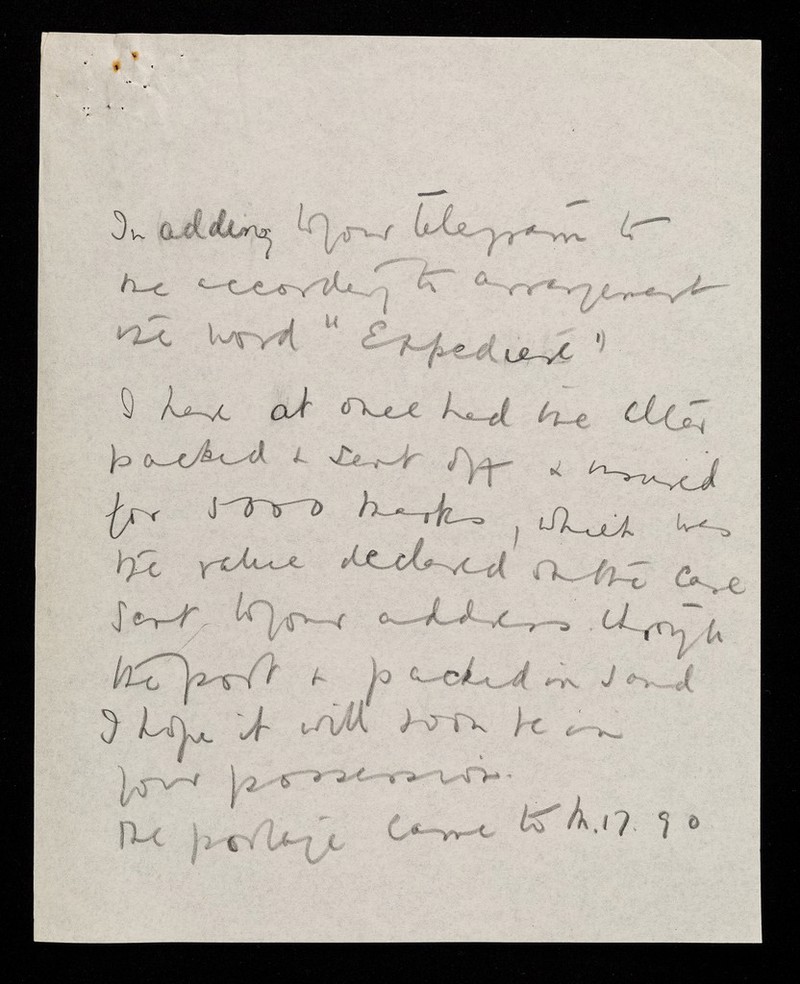 In adding to your telegram to
me according to arrangement
the word "Expediert"
I have at once had the altar
packed & sent off & insured
for 5000 Marks, which was
the value declared on the case
sent to your address through
the post & packed in sand
I hope it will soon be in
your possession.
The postage came to M.17.90